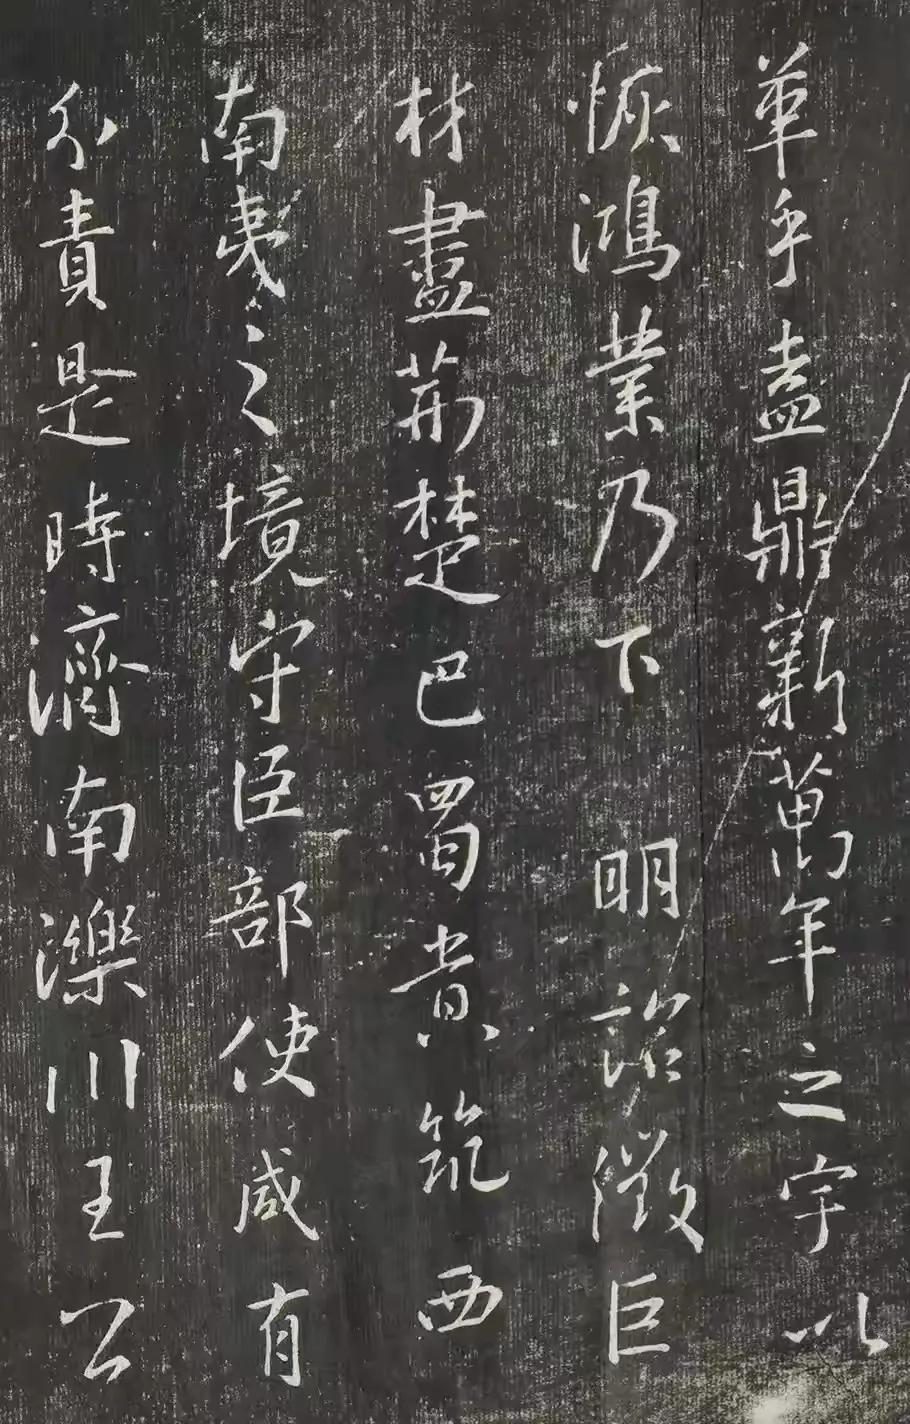 革乎盍鼎新萬年之宇以
恢鴻業乃下明詔徵巨
材盡荊楚巴蜀貴筑西
南夷之境守臣部使咸有
分責是時濟南濼川王公